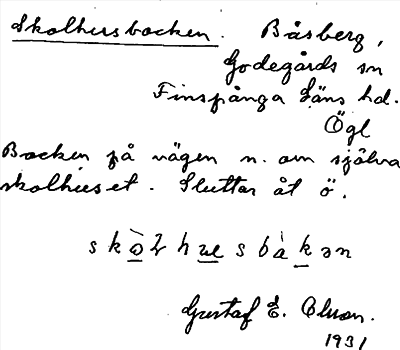 Skolhusbacken. Båsberg,
Godegårds sn
Finspånga Läns hd.
Ögl
Backen på vägen n. om själva
skolhuset. Sluttar åt ö.
Gustaf E.
1931